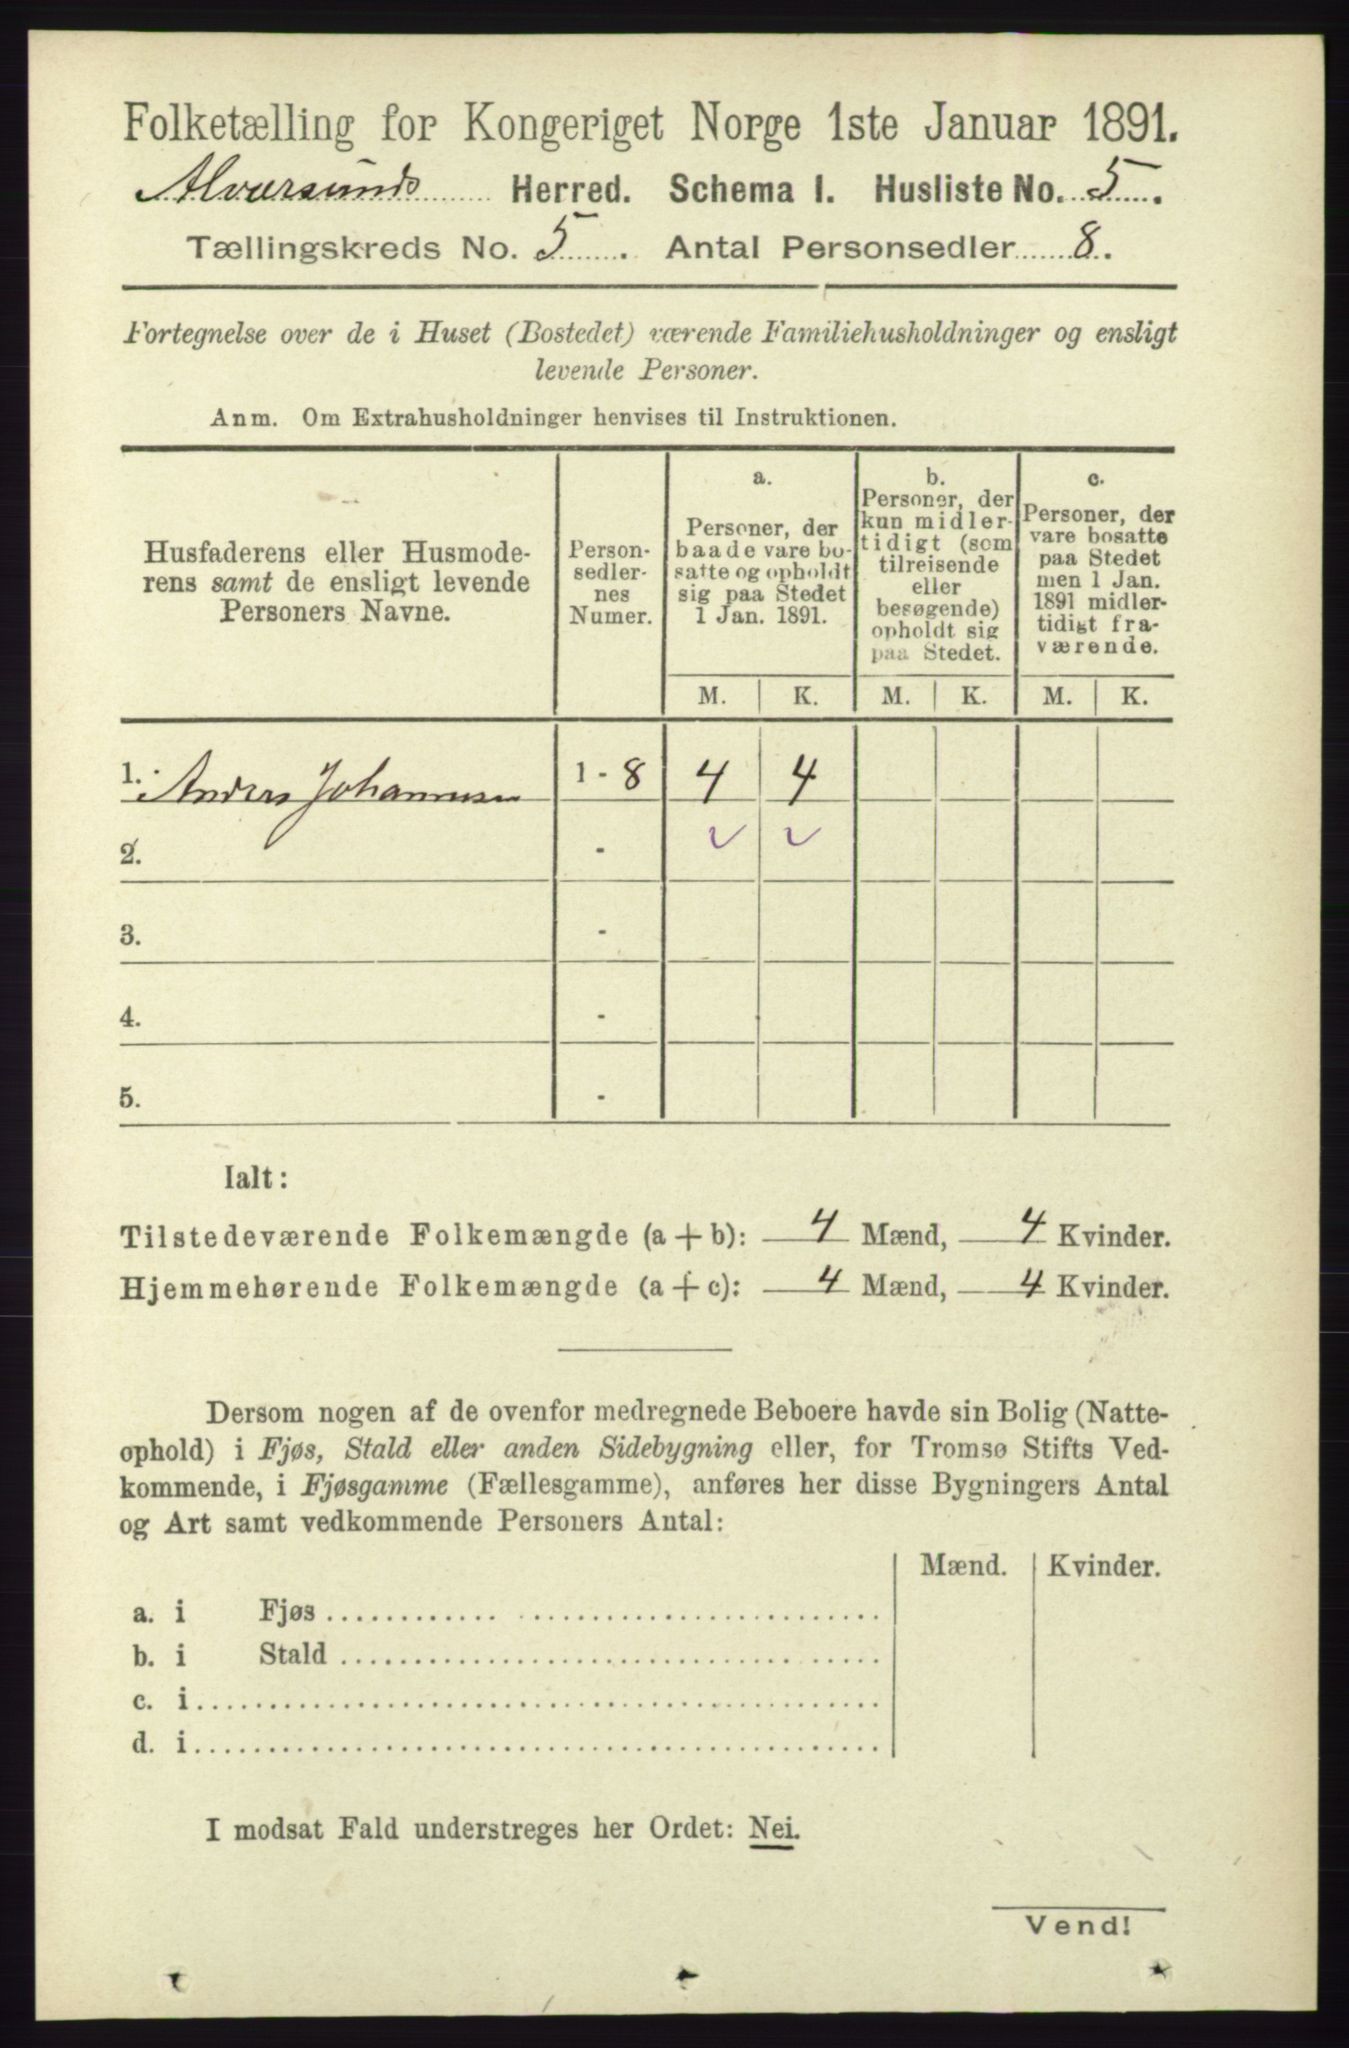 Folketælling for Kongeriget Norge 1ste Januar 1891.
Alversunds Herred. Schema I. Husliste No. 5.
Tællingskreds No. 5. Antal Personsedler 8.
Fortegnelse over de i Huset (Bostedet) værende Familiehusholdninger og ensligt
levende Personer.
Anm. Om Extrahusholdninger henvises til Instruktionen.
Husfaderens eller Husmode-
rens samt de ensligt levende
Personers Navne.
Person-
sedler-
nes
Numer.
a.
Personer, der
baade vare bo-
satte og opholdt
sig paa Stedet
1 Jan. 1891.
b.
Personer, der
kun midler-
tidigt (som
tilreisende
eller
besøgende)
opholdt sig
paa Stedet.
c.
Personer, der
vare bosatte
paa Stedet
men 1 Jan.
1891 midler-
tidigt fra-
værende.
M. K. M. K. M. K.
1. Anders Johannesen 1 - 8 4 4
2. -
3. -
4. -
5. -
Ialt:
Tilstedeværende Folkemængde (a + b): 4 Mænd, 4 Kvinder.
Hjemmehørende Folkemængde (a + c): 4 Mænd, 4 Kvinder.
Dersom nogen af de ovenfor medregnede Beboere havde sin Bolig (Natte-
ophold) i Fjøs, Stald eller anden Sidebygning eller, for Tromsø Stifts Ved-
kommende, i Fjøsgamme (Fællesgamme), anføres her disse Bygningers Antal
og Art samt vedkommende Personers Antal:
Mænd. Kvinder.
a. i Fjøs
b. i Stald
c. i
d. i
I modsat Fald understreges her Ordet: Nei.
Vend!